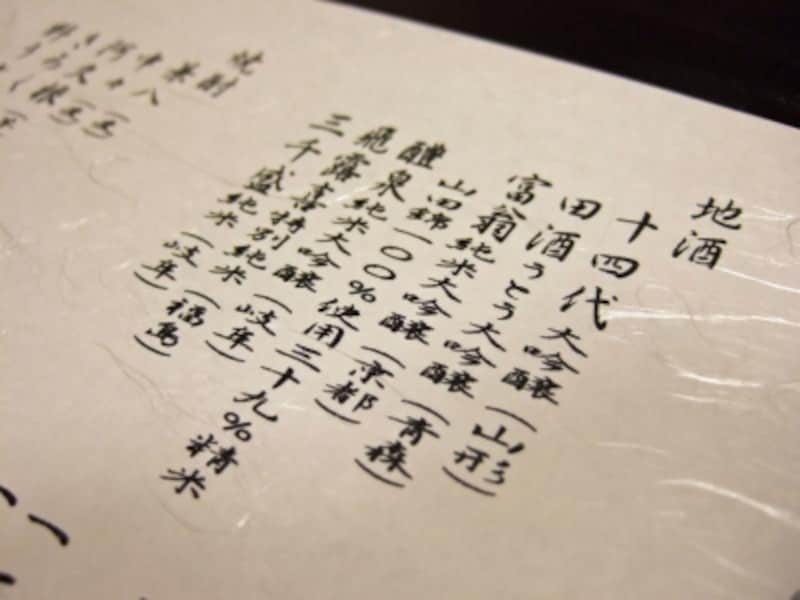 地酒
十四代 大吟醸 (山形)
田酒 うとう 大吟醸 (青森)
富翁 純米大吟醸 (京都)
山田錦一〇〇%使用三十九%精米
醴泉 純米大吟醸 (岐阜)
飛露喜 特別純米 (福島)
三千盛 純米 (岐阜)
焼酎
兼八
中々
阿久根